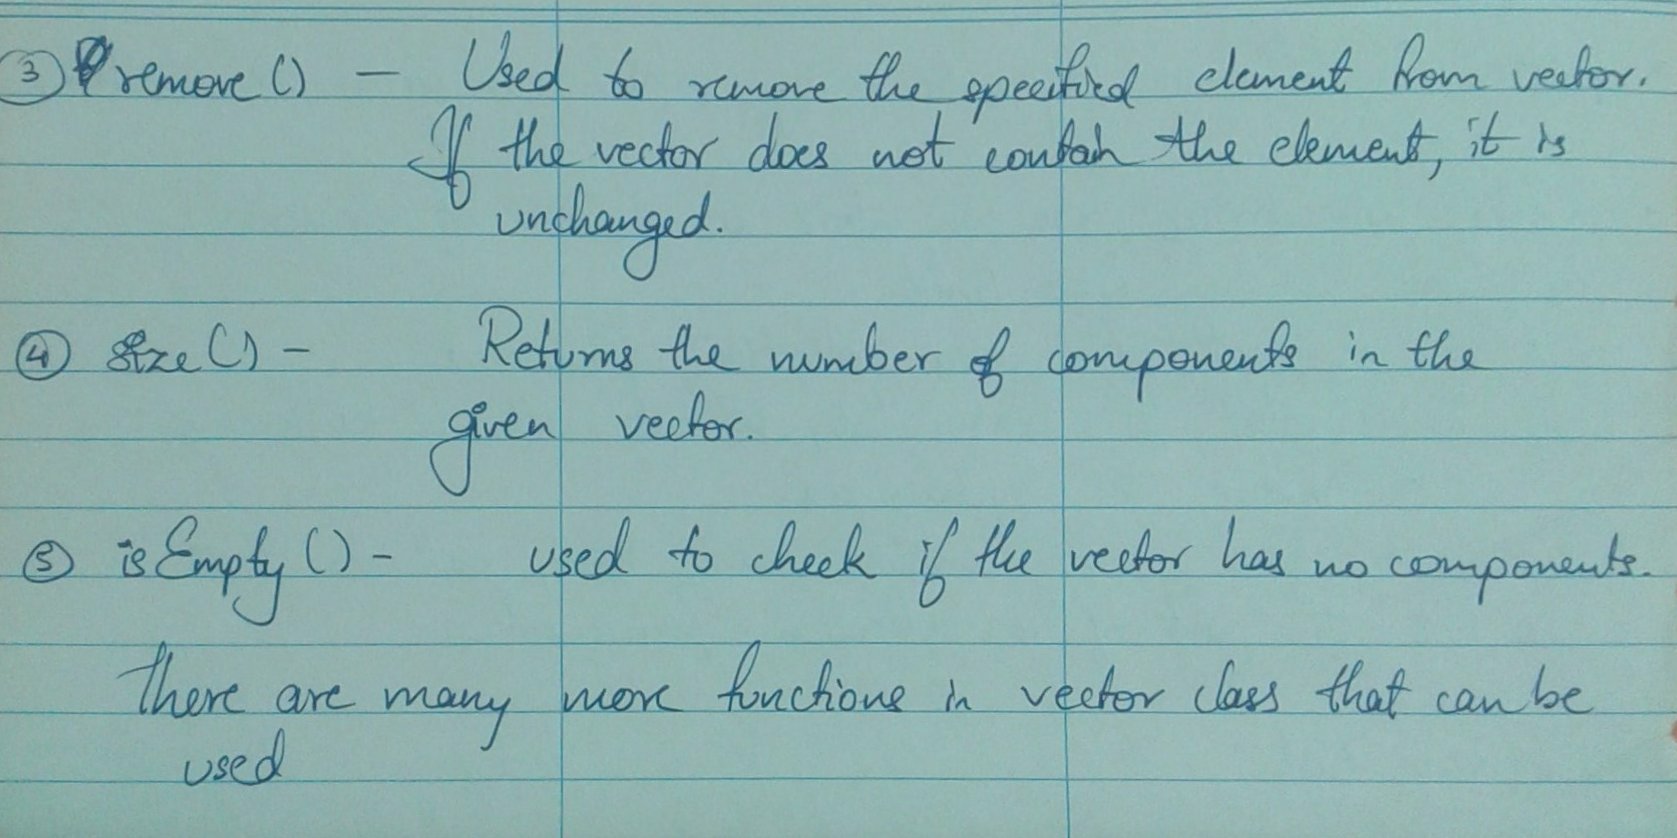 ③ remove () — Used to remove the specified element from vector.
If the vector does not contain the element, it is
unchanged.
④ size () - Returns the number of components in the
given vector.
⑤ isEmpty () - used to check if the vector has no components.
There are many more functions in vector class that can be
used